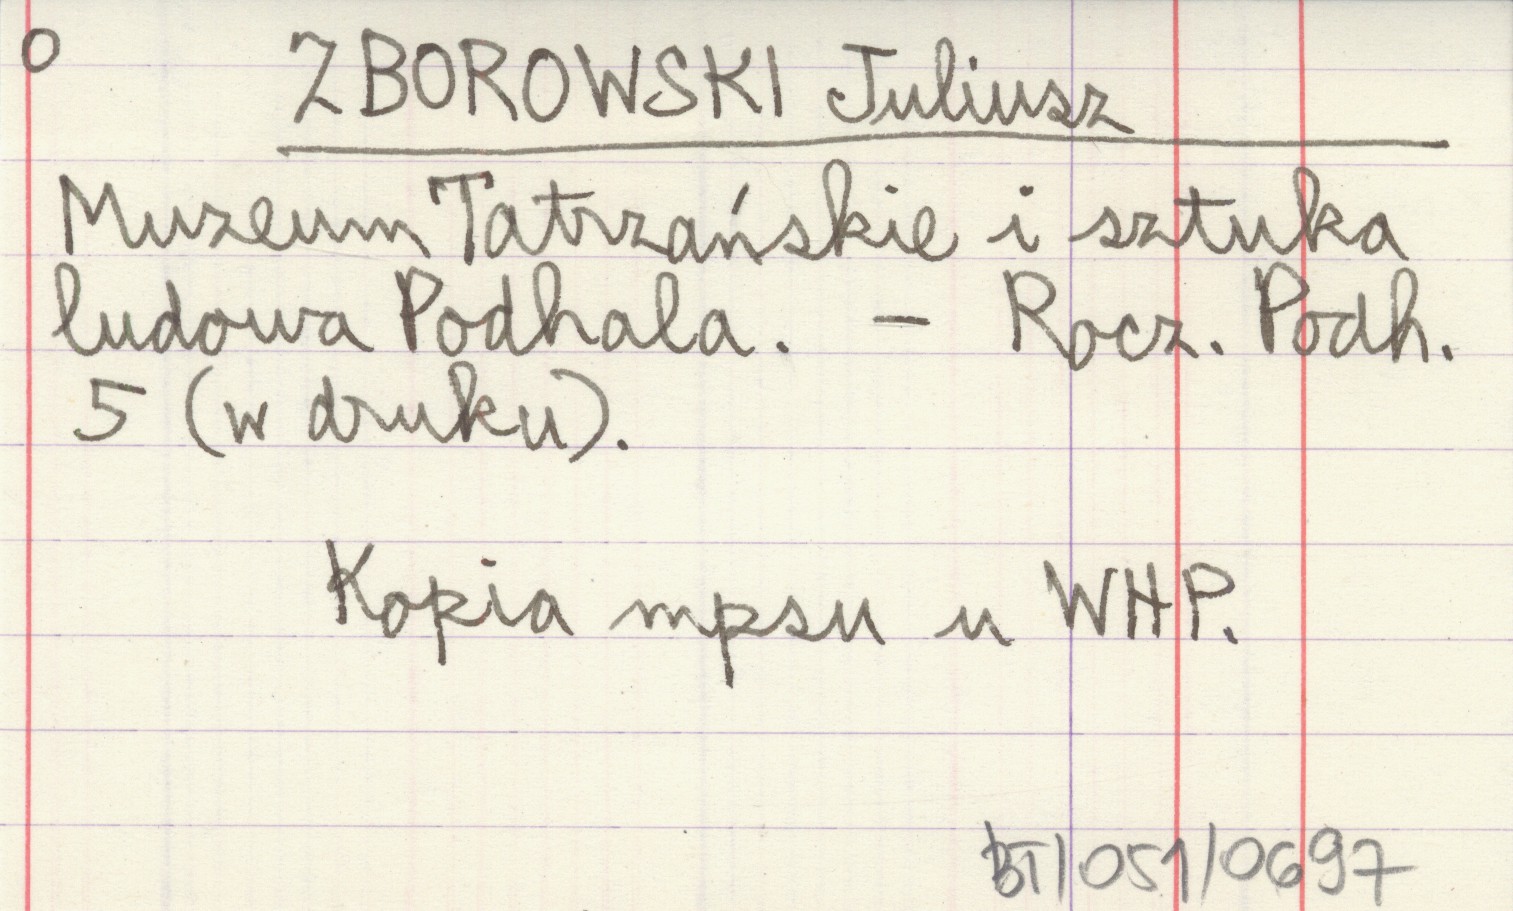 O
ZBOROWSKI Juliusz
Muzeum Tatrzańskie i sztuka
ludowa Podhala. - Rocz. Podh.
5 (w druku).
Kopia mpsu u WHP.
BT/051/0697